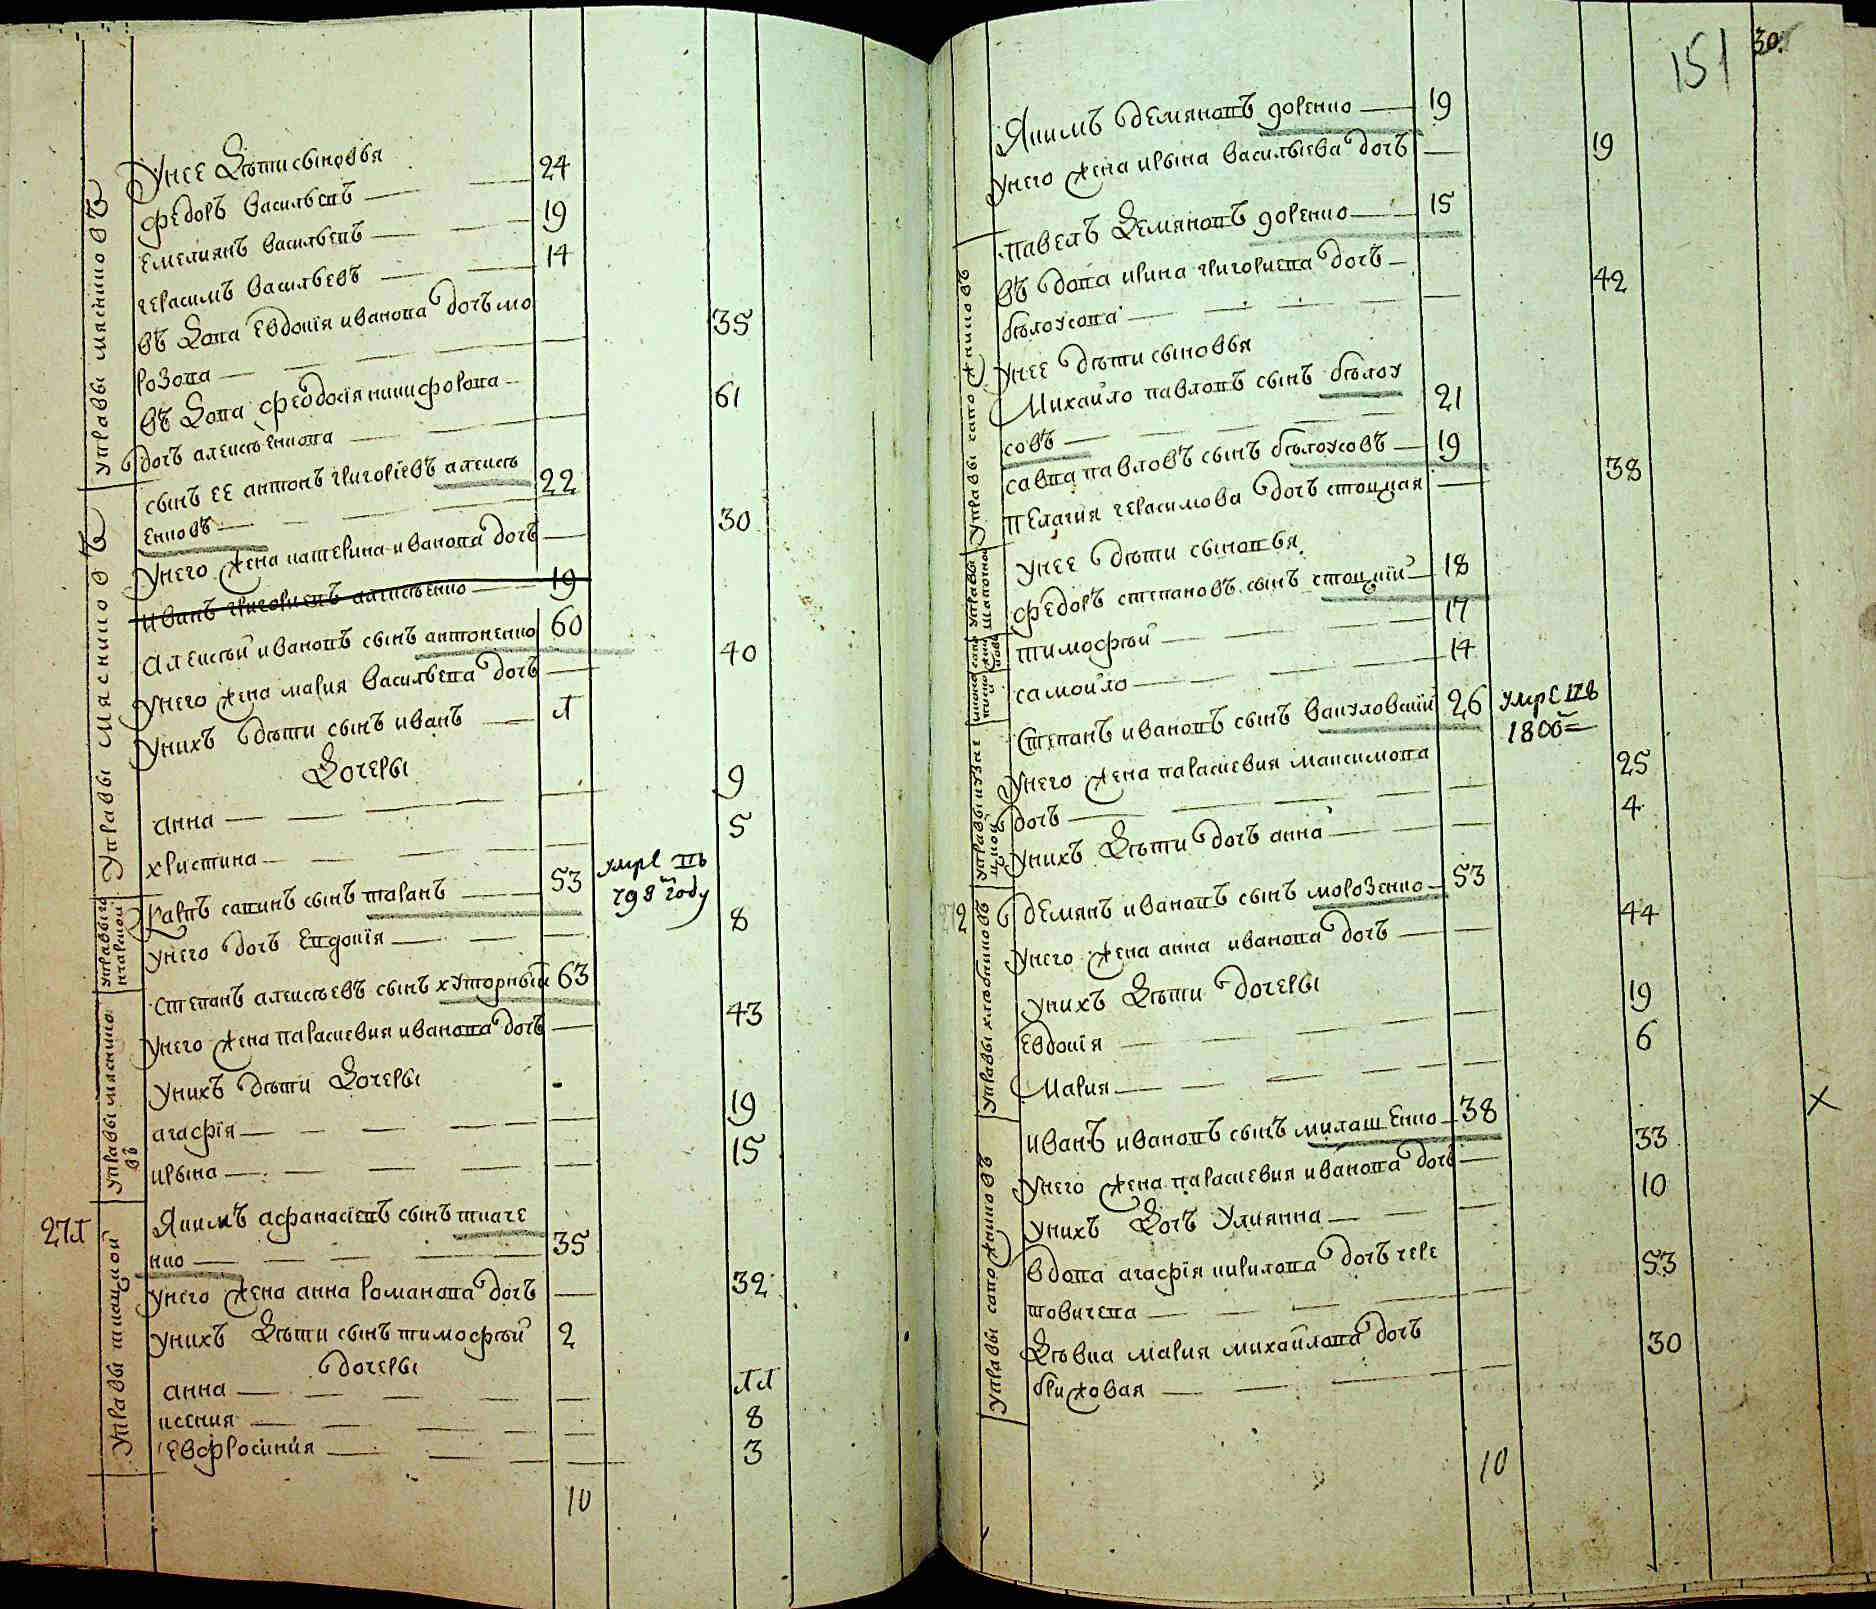 Унее дѣти сыновья
федоръ васильевъ 24
емелиянъ васильевъ 19
герасимъ васильевъ 14
въдова Евдокія иванова дочь мо
розова 35
въдова феодосія никифорова
дочь алексѣенкова 61
сынъ ее антонъ григоріевъ алексѣ
енковъ 22
унего жена катерина иванова дочь 30
иванъ григориевъ алексѣенко 19
алексѣй ивановъ сынъ антоненко 60
унего жена мария васильева дочь 40
унихъ дѣти сынъ иванъ 1
дочеры
анна 9
христина 5
карпъ савинъ сынъ таранъ 53 умре въ
798м году
унего дочь евдокія 8
степанъ алексѣевъ сынъ хуторный 63
унего жена параскевия иванова дочь 43
унихъ дѣти дочеры
агафія 19
ирына 15
271
Якимъ афанасіевъ сынъ ткаче
нко 35
унего жена анна романова дочь 32
унихъ дѣти сынъ тимофѣй 2
дочеры
анна 11
ксения 8
евфросиния 3
10
управы мяснико въ
управы мяснико въ
управы мяснико
въ
управы ткацкой
151 30.
Якимъ демяновъ доренко 19
унего жена ирына васильева дочь 19
павелъ демяновъ доренко 15
въдова ирина григориева дочь
бѣлоусова 42
унее дѣти сыновья
Михайло павловъ сынъ бѣлоу
совъ 21
савва павловъ сынъ бѣлоусовъ 19
пелагия герасимова дочь стоцкая 38
унее дѣти сыновья
федоръ степановъ сынъ стоцкий 18
тимофѣй 17
самойло 14
Степанъ ивановъ сынъ вакуловский 26 умре въ
1800
унего жена параскевия максимова
дочь 25
унихъ дѣти дочь анна 4
272
демянъ ивановъ сынъ морозенко 53
унего жена анна иванова дочь 44
унихъ дѣти дочеры
евдокія 19
Мария 6
иванъ ивановъ сынъ милашенко 38
унего жена параскевия иванова дочь 33
унихъ дочь Улиянна 10
вдова агафія кирилова дочь чере
повичева 53
дѣвка мария михайлова дочь
брижовая 30
10
управы сапожниковъ
управы кузне
цкой
управы хлѣбниковъ
управы сапожниковъ